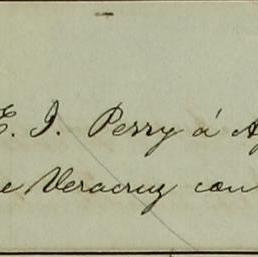 E. J. Perry á A
e Veracruz con